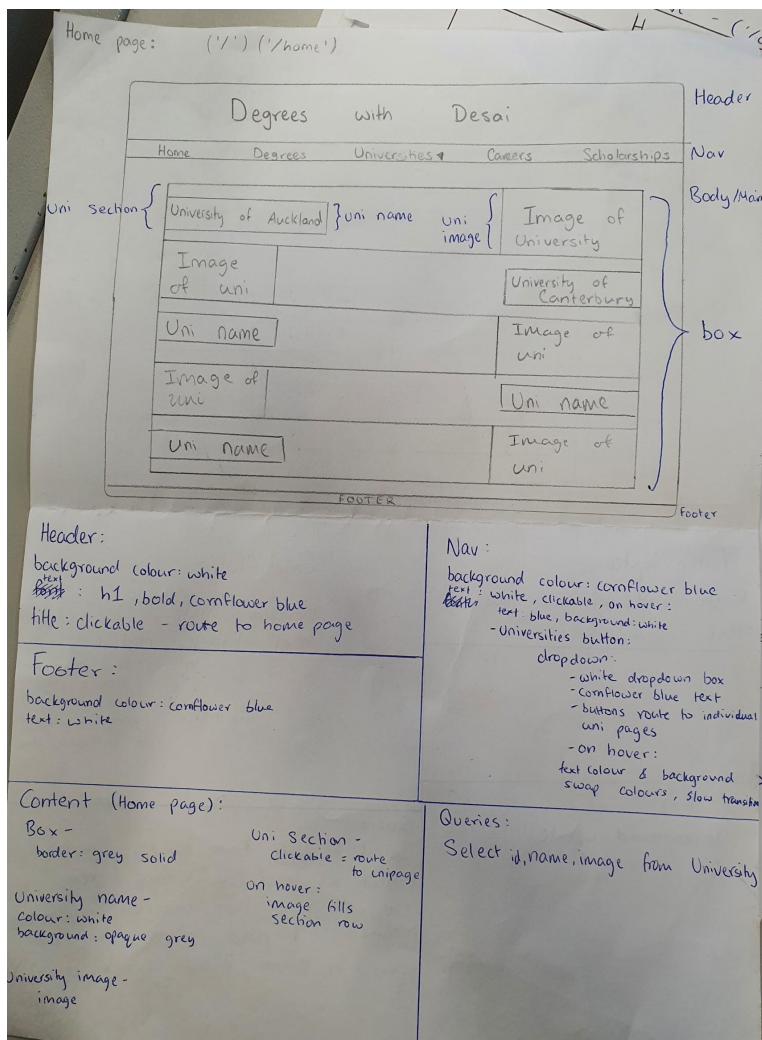 Home page: ('/') ('/home')
Header
Degrees with Desai
Home Degrees Universities Careers Scholarships
Nav
Body/Main
Uni section
University of Auckland
uni name
uni image
Image of University
Image of uni
University of Canterbury
box
Uni name
Image of uni
Image of uni
Uni name
Uni name
Image of uni
FOOTER
Footer
Header:
background colour: white
text : h1, bold, cornflower blue
title: clickable - route to home page
Nav:
background colour: cornflower blue
text: white, clickable, on hover:
text: blue, background: white
- Universities button:
dropdown:
- white dropdown box
- cornflower blue text
- buttons route to individual
uni pages
- on hover:
text colour & background
swap colours, slow transition
Footer:
background colour: cornflower blue
text: white
Content (Home page):
Box -
border: grey solid
University name -
colour: white
background: opaque grey
University image -
image
Uni Section -
clickable = route
to unipage
on hover:
image fills
section row
Queries:
Select id, name, image from University